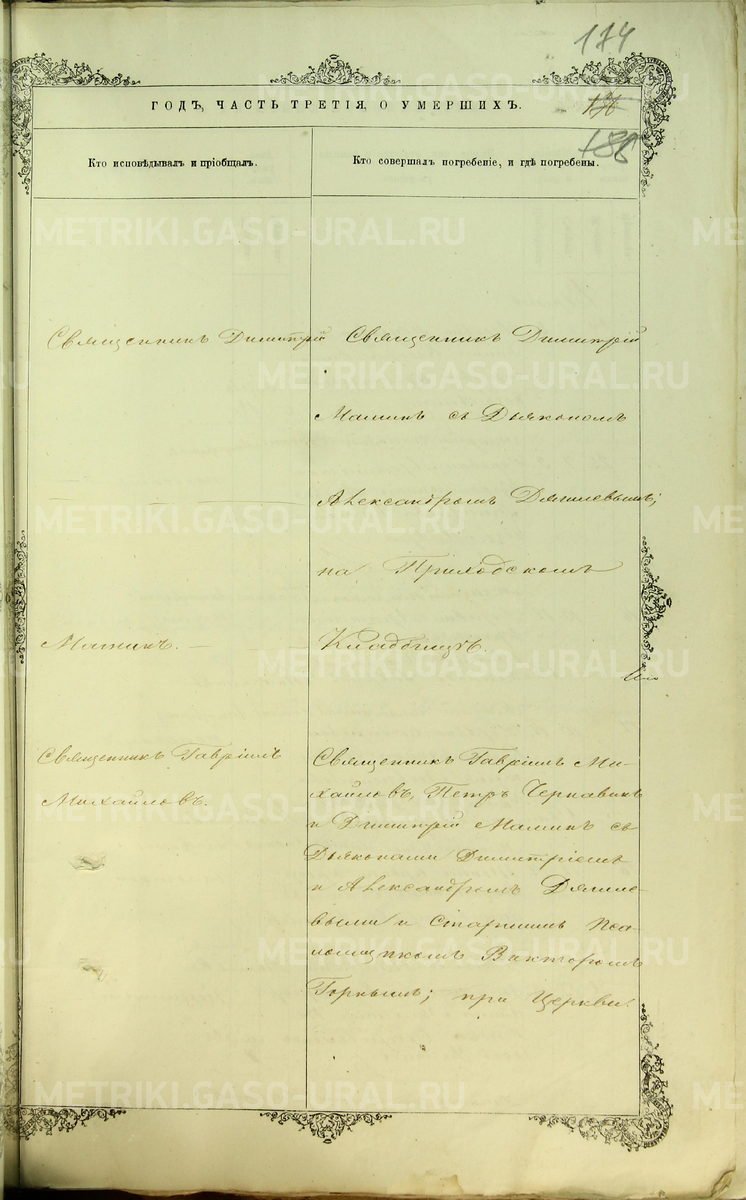 174
ГОДЪ, ЧАСТЬ ТРЕТІЯ, О УМЕРШИХЪ.
176
186
Кто исповѣдывалъ и пріобщалъ.
Кто совершалъ погребеніе, и гдѣ погребены.
Священникъ Димитрій
Маминъ.
Священникъ Димитрій
Маминъ съ Дьякономъ
Александромъ
на Приходскомъ
Кладбищѣ.
Священникъ Гавріилъ
Михайловъ.
Священникъ Гавріилъ Ми-
хайловъ, Петръ Чернавинъ
и Димитрій Маминъ съ
Дьяконами Димитріемъ
и Александромъ
выми и Старшимъ Пса-
ломщикомъ Викторомъ
Горнымъ; при Церкви.
METRIKI.GASO-URAL.RU